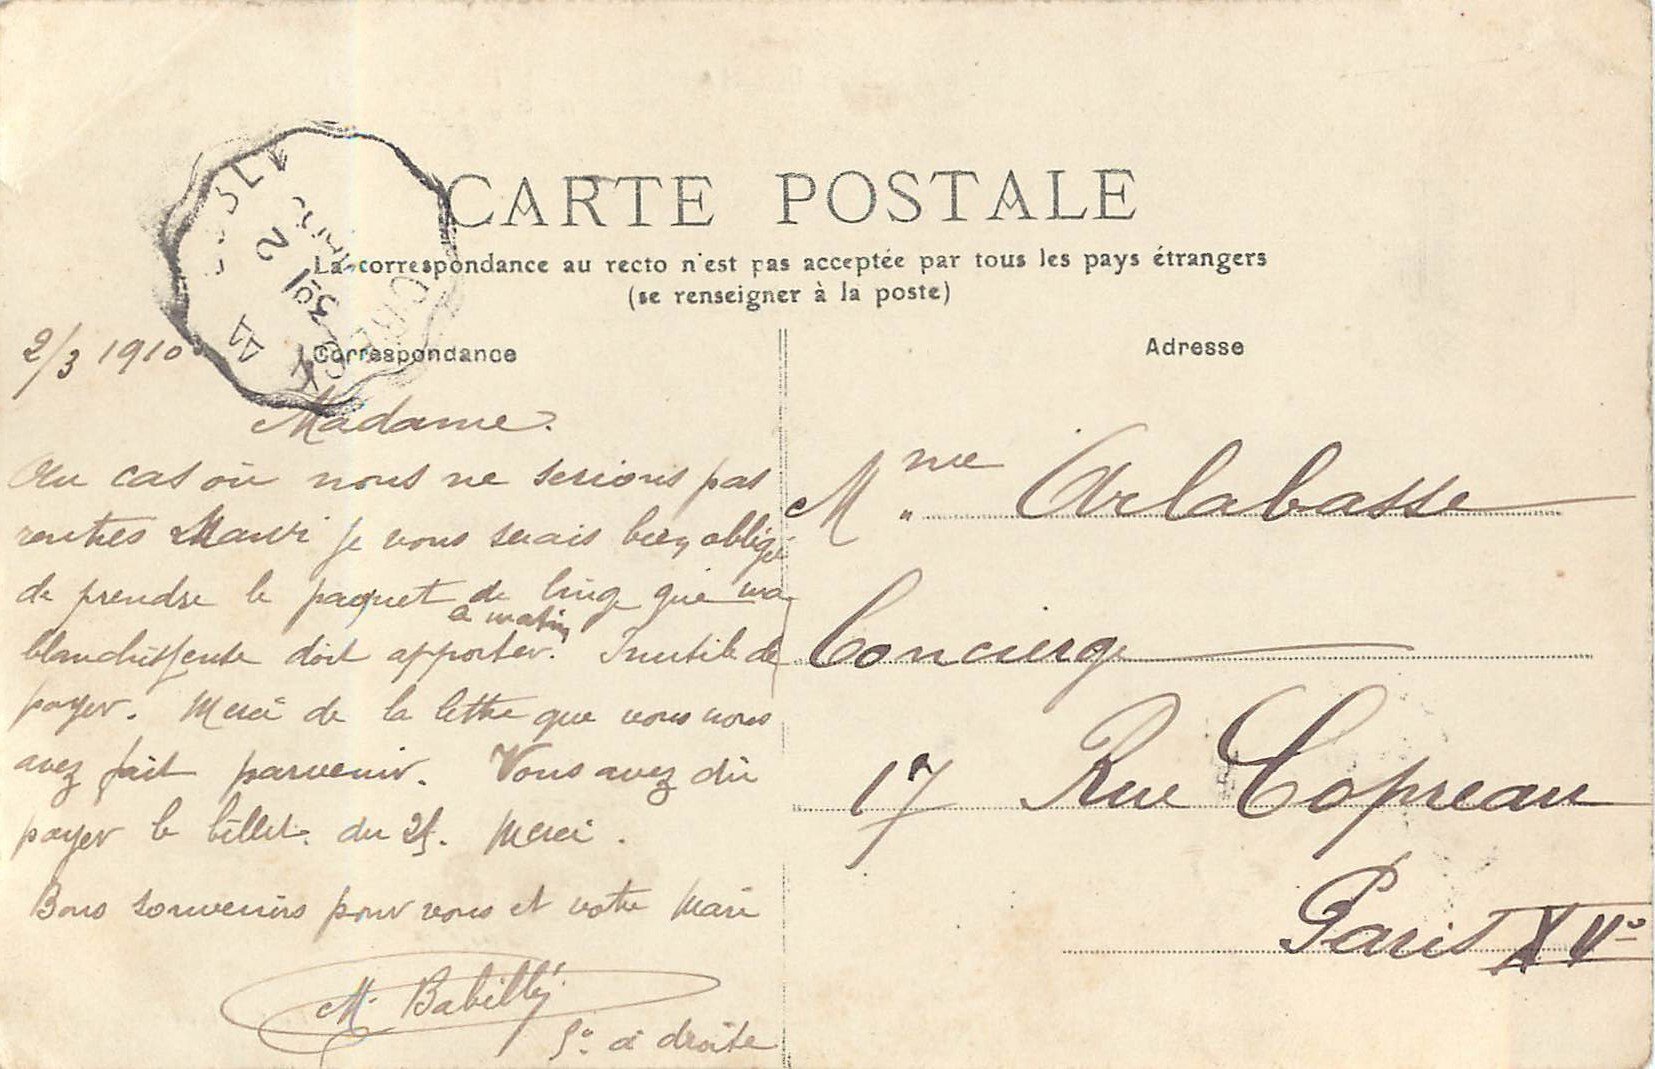 CARTE POSTALE
La correspondance au recto n'est pas acceptée par tous les pays étrangers
(se renseigner à la poste)
Correspondance
Adresse
2/3 1910
Madame.
Au cas où nous ne serions pas
rentrés Mardi je vous serais bien obligé
de prendre le paquet de linge que ma
blanchisseuse doit apporter. Inutile de
ce matin
payer. Merci de la lettre que vous nous
avez fait parvenir. Vous avez dû
payer le billet du 25. Merci.
Bons souvenirs pour vous et votre Mari
M. Babilly
5e à droite
Mme Arlabasse
Concierge
17 Rue Copreau
Paris XVe